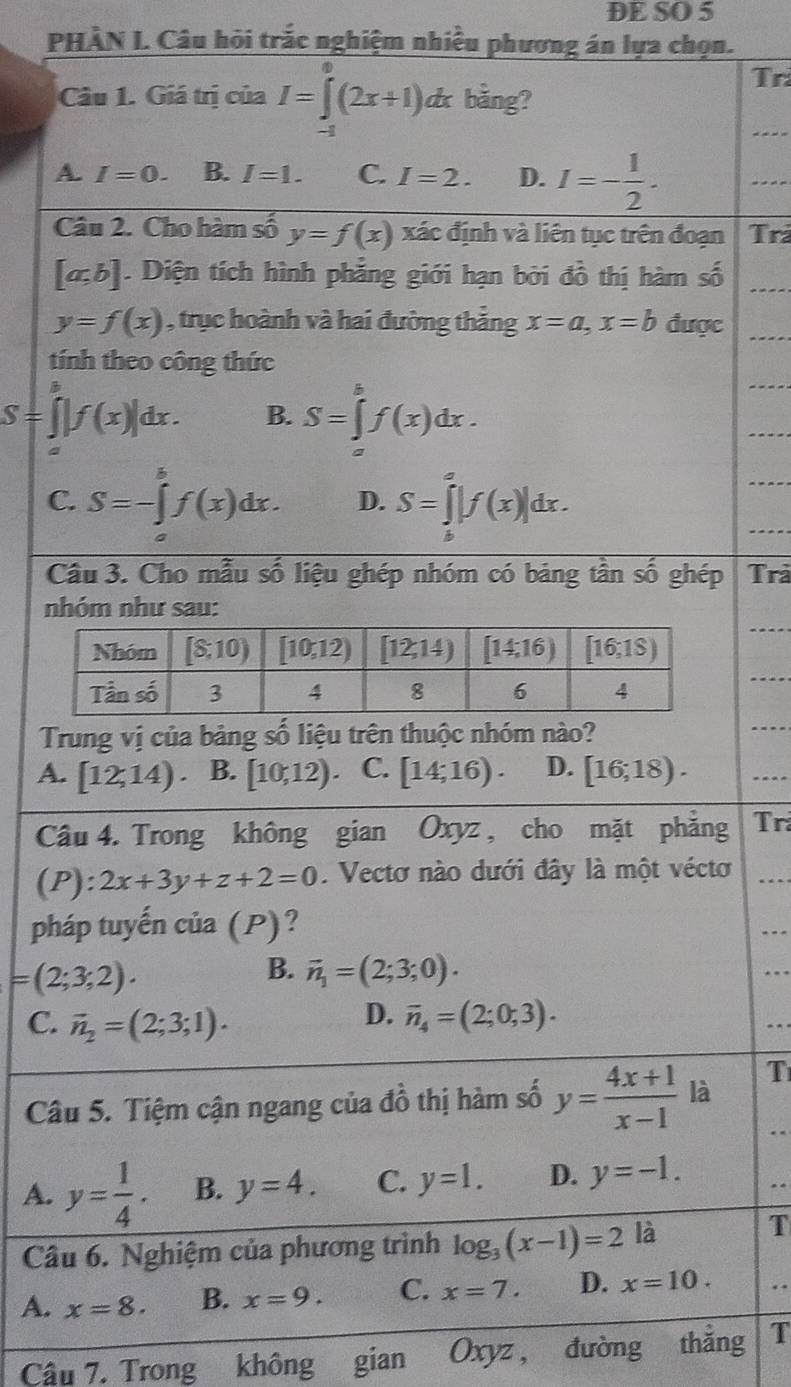 ĐỀ SỐ 5
PHẦN I. Câu hỏi trắc nghiệm nhiều phương án lựa chọn.
Câu 1. Giá trị của I = ∫_{-1}^{0} (2x+1)dx bằng?
A. I = 0. B. I = 1. C. I = 2. D. I = -1/2.
Câu 2. Cho hàm số y = f(x) xác định và liên tục trên đoạn
[a;b]. Diện tích hình phẳng giới hạn bởi đồ thị hàm số
y = f(x), trục hoành và hai đường thẳng x = a, x = b được
tính theo công thức
S = ∫_{a}^{b} |f(x)|dx. B. S = ∫_{a}^{b} f(x)dx.
C. S = -∫_{a}^{b} f(x)dx. D. S = ∫_{b}^{a} |f(x)|dx.
Câu 3. Cho mẫu số liệu ghép nhóm có bảng tần số ghép
nhóm như sau:
Nhóm [8;10) [10;12) [12;14) [14;16) [16;18)
Tần số 3 4 8 6 4
Trung vị của bảng số liệu trên thuộc nhóm nào?
A. [12;14). B. [10;12). C. [14;16). D. [16;18).
Câu 4. Trong không gian Oxyz, cho mặt phẳng
(P): 2x+3y+z+2=0. Vectơ nào dưới đây là một véctơ
pháp tuyến của (P)?
=(2;3;2). B. n⃗₁ = (2;3;0).
C. n⃗₂ = (2;3;1). D. n⃗₄ = (2;0;3).
Câu 5. Tiệm cận ngang của đồ thị hàm số y = (4x+1)/(x-1) là
A. y = 1/4. B. y = 4. C. y = 1. D. y = -1.
Câu 6. Nghiệm của phương trình log₃(x-1) = 2 là
A. x = 8. B. x = 9. C. x = 7. D. x = 10.
Câu 7. Trong không gian Oxyz, đường thẳng